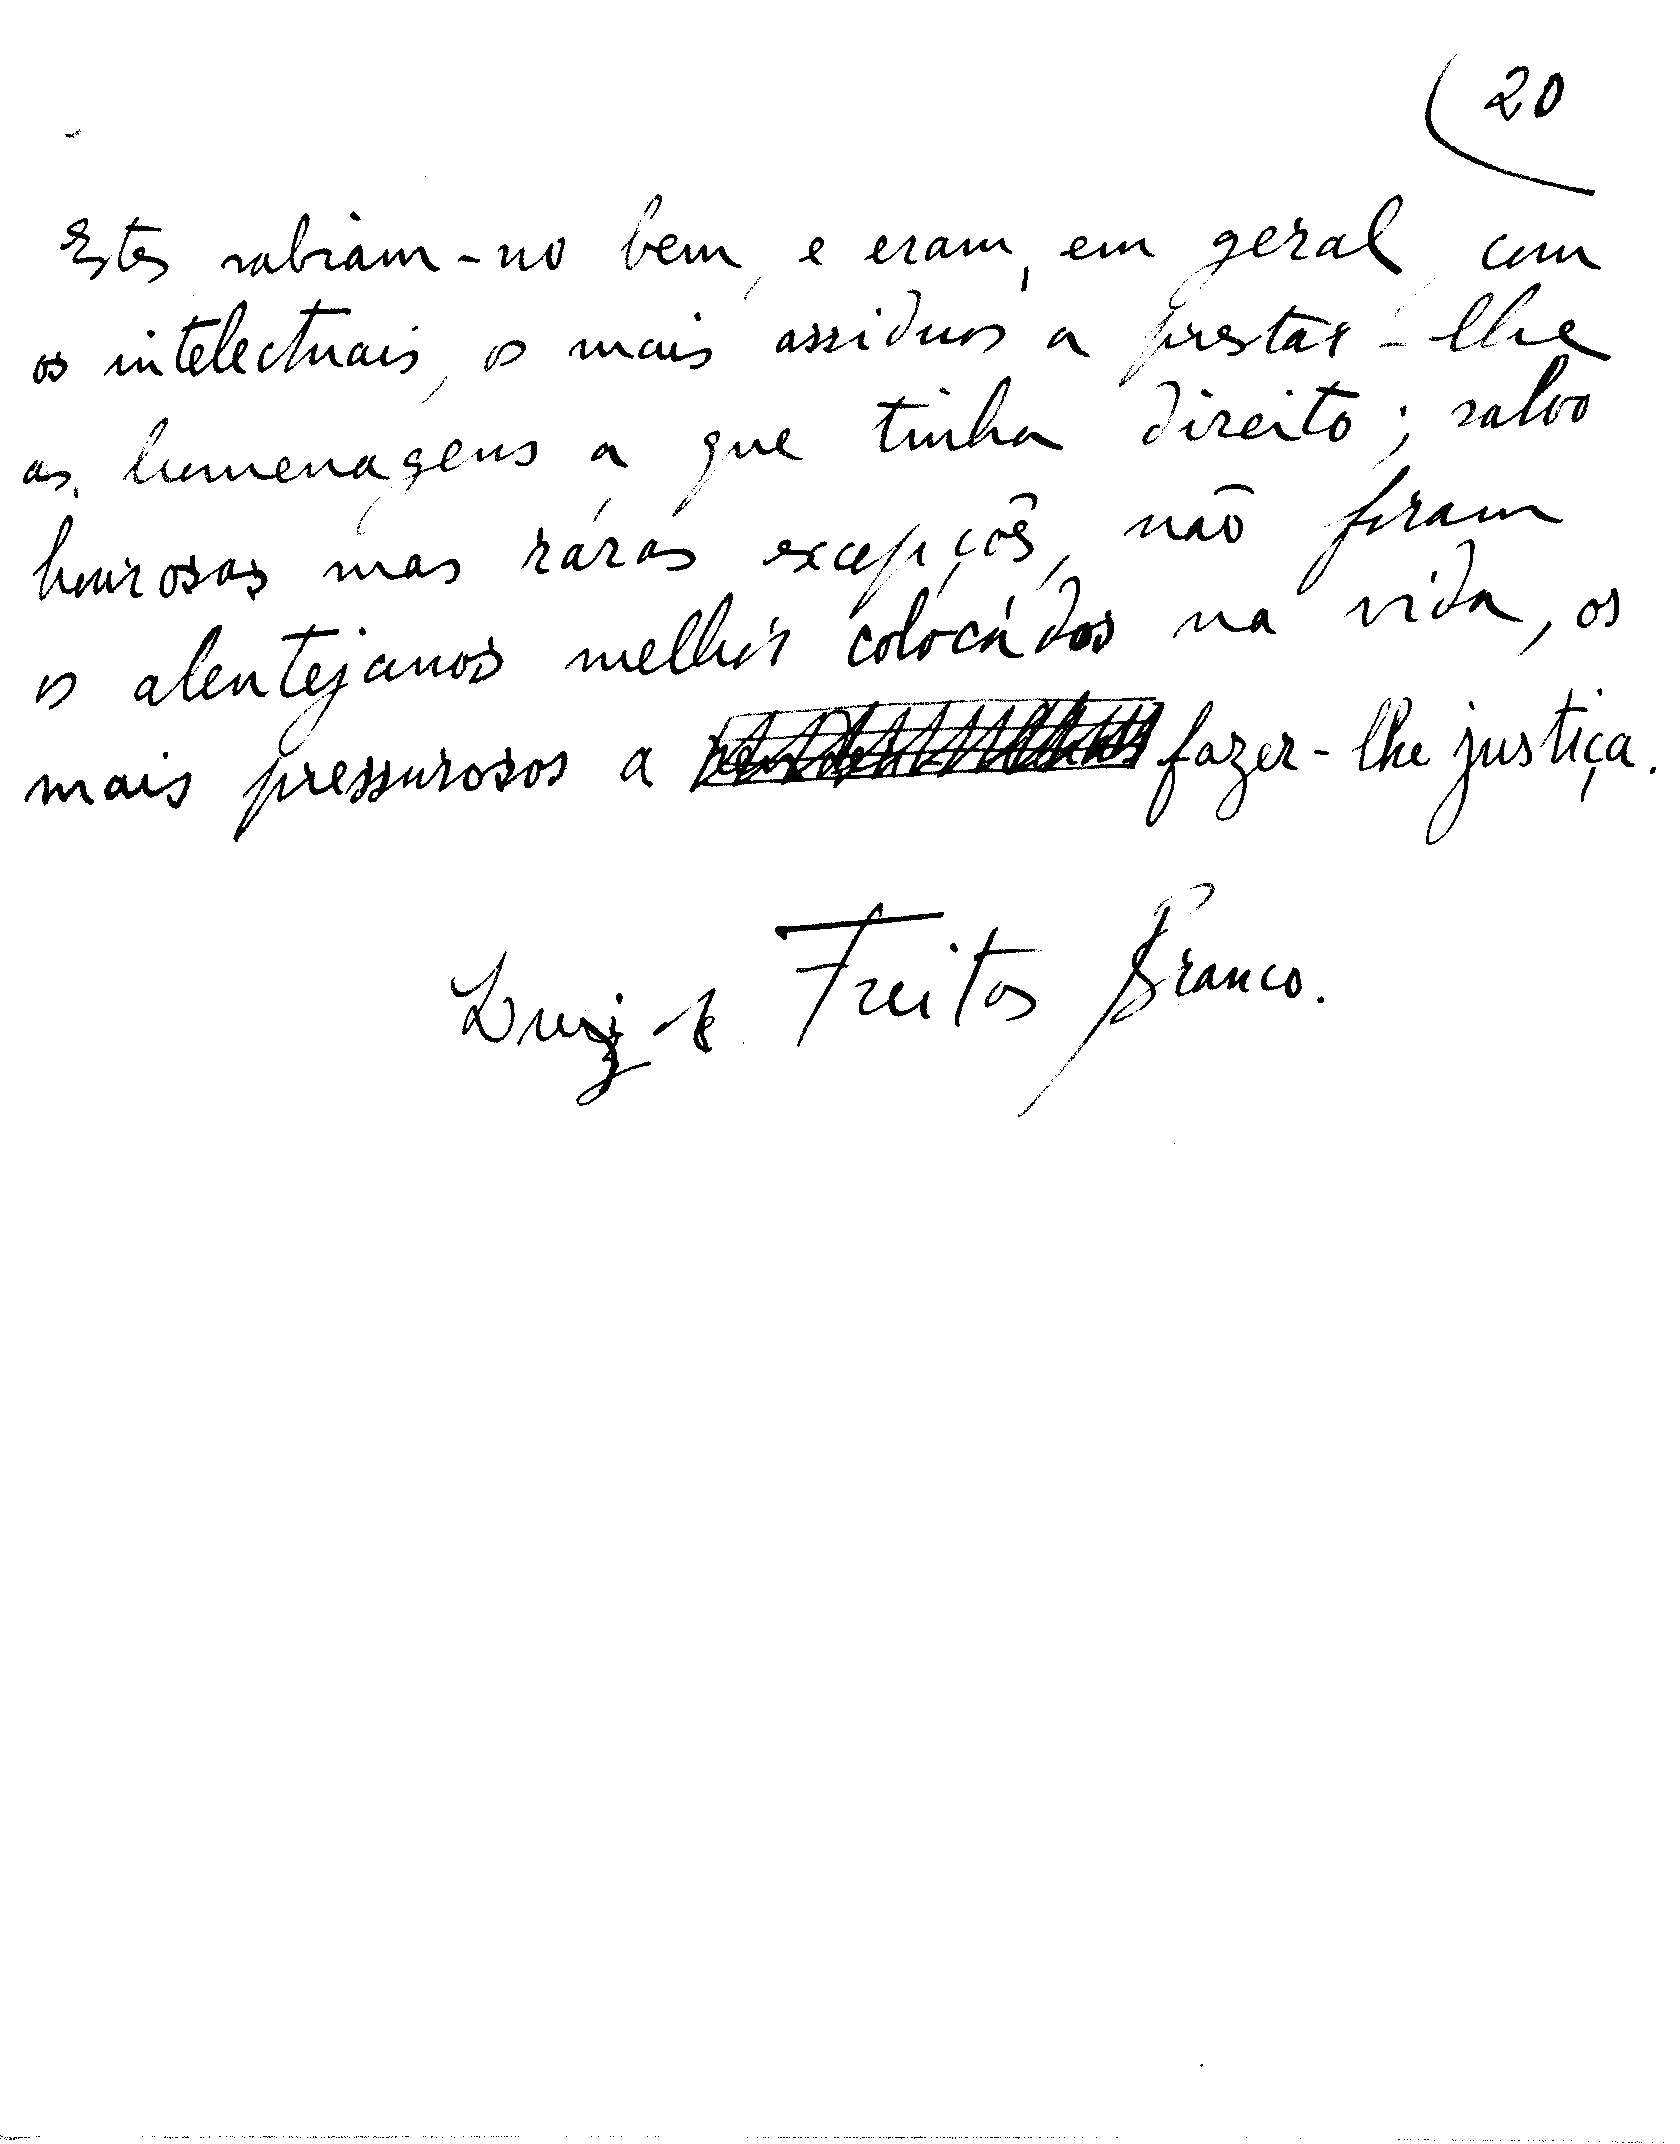 20
Estes sabiam-no bem, e eram, em geral, com
os intelectuais, os mais assiduos a prestar-lhe
as homenagens a que tinha direito; salvo
honrosas mas raras excepções, não foram
os alentejanos melhor colocados na vida, os
mais pressurosos a fazer-lhe justiça.
Luiz de Freitas Branco.